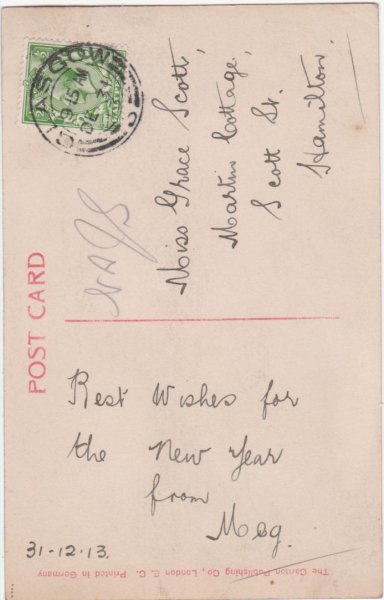 POST CARD
GLASGOW
9 15 M
DE 31
Miss Grace Scott,
Martin Cottage,
Scott St.
Hamilton.
Best Wishes for
the New Year
from
Meg.
31-12-13.
The Carlton Publishing Co., London E. C. Printed in Germany